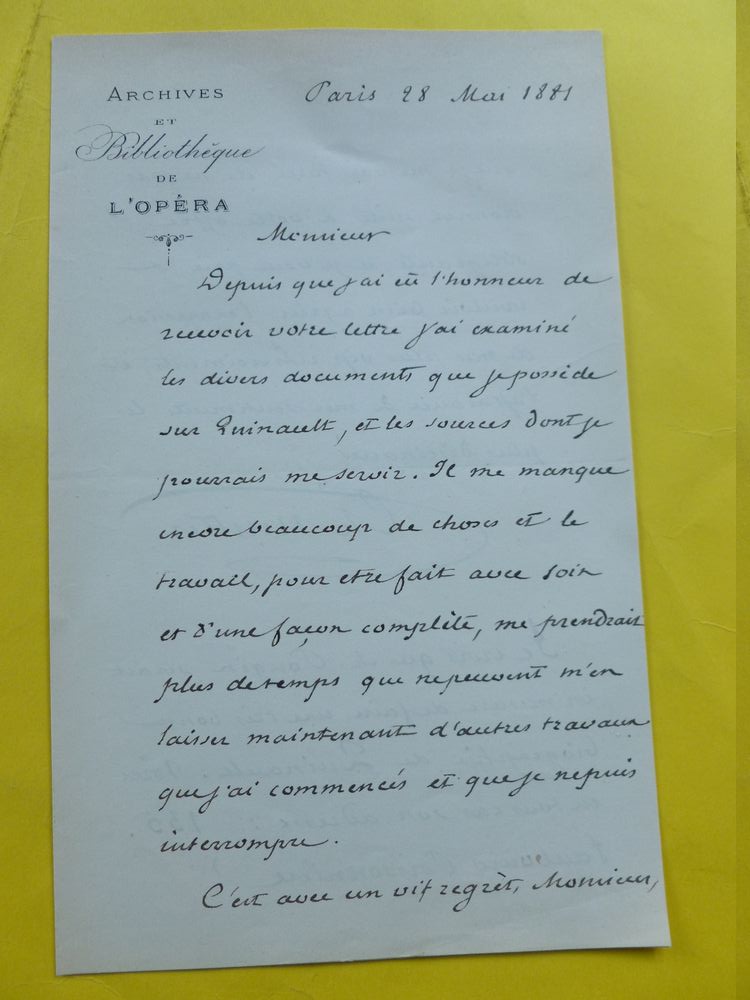 ARCHIVES
ET
Bibliothèque
DE
L'OPÉRA
Paris 28 Mai 1881
Monsieur
Depuis que j'ai eû l'honneur de
recevoir votre lettre j'ai examiné
les divers documents que je possède
sur Quinault, et les sources dont je
pourrais me servir. Il me manque
encore beaucoup de choses et le
travail, pour etre fait avec soin
et d'une façon complète, me prendrait
plus de temps que ne peuvent m'en
laisser maintenant d'autres travaux
que j'ai commencés et que je ne puis
interrompre.
C'est avec un vif regrèt, Monsieur,